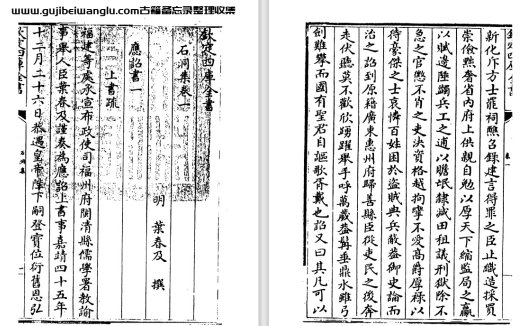 www.gujibeiwanglu.com古籍备忘录整理收集
欽定四庫全書
石洞集卷一
明 葉春及 撰
應詔書一
上書疏
福建等處承宣布政使司福州府閩清縣儒學署教諭
事舉人臣葉春及謹奏為應詔上書事嘉靖四十五年
十二月二十六日恭遇皇帝陛下嗣登寳位衍舊恩弘
欽定四庫全書
石洞集
新化斥方士罷祠熊召錄建言得罪之臣止織造採買
崇儉黜奢省内府上供親自勉以厚天下縮監局之羸
以賦邊陲蠲兵工之逋以贍氓隸減田租議刑獄除不
急之官懲不肖之吏決資格越拘攣不愛高爵厚祿以
待豪傑之士哀憐百姓困於盜賊典兵蔽益御史論而
治之詔到原籍廣東惠州府歸善縣臣從吏民之後奔
走伏聽莫不歡欣踴躍舉手呼萬歲葢髯垂鼎水雖弓
劍難攀而國有聖君自謳歌胥戴也詔又曰其凡可以